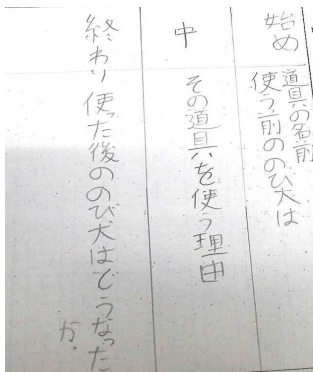 始め
道具の名前
使う前ののび犬は
中
その道具を使う理由
終わり
使った後ののび犬はどうなった
か。